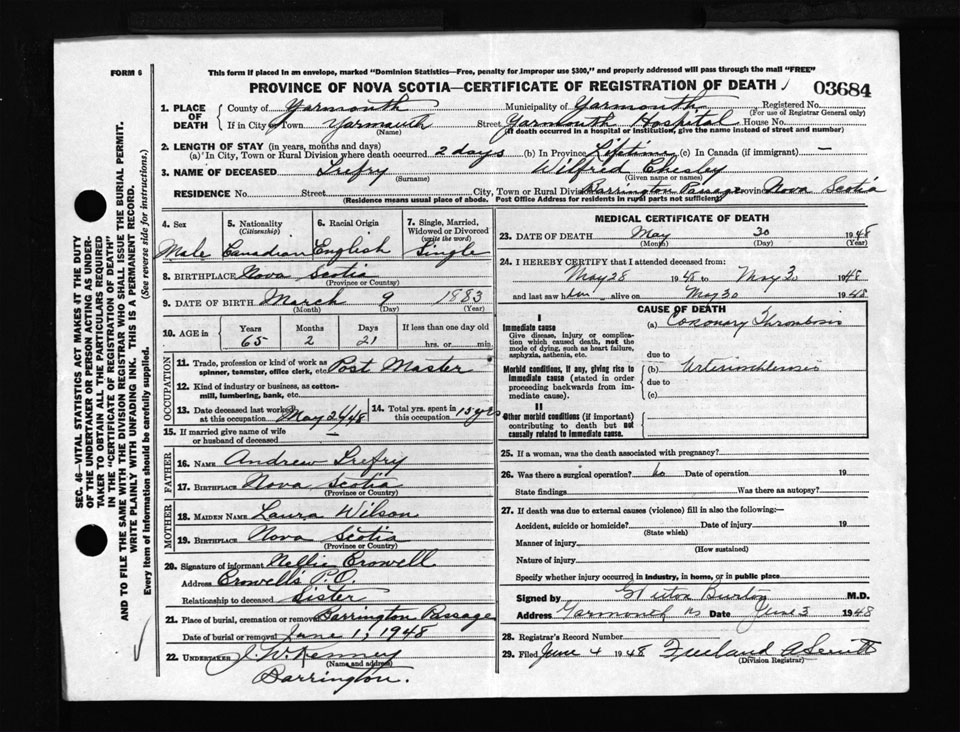 FORM 6
This form if placed in an envelope, marked "Dominion Statistics—Free, penalty for improper use $300," and properly addressed will pass through the mail "FREE"
PROVINCE OF NOVA SCOTIA—CERTIFICATE OF REGISTRATION OF DEATH
03684
1. PLACE OF DEATH
County of Yarmouth Municipality of Yarmouth Registered No.
(For use of Registrar General only)
If in City or Town Yarmouth Street Yarmouth Hospital House No.
(Name) (If death occurred in a hospital or institution, give the name instead of street and number)
2. LENGTH OF STAY (in years, months and days)
(a) In City, Town or Rural Division where death occurred 2 days (b) In Province Lifetime (c) In Canada (if immigrant) —
3. NAME OF DECEASED Trefry Wilfred Chesley
(Surname) (Given name or names)
RESIDENCE No. Street City, Town or Rural Division Barrington Passage Province Nova Scotia
(Residence means usual place of abode. Post Office Address for residents in rural parts not sufficient)
4. Sex
Male
5. Nationality
(Citizenship)
Canadian
6. Racial Origin
English
7. Single, Married, Widowed or Divorced
(write the word)
Single
8. BIRTHPLACE Nova Scotia
(Province or Country)
9. DATE OF BIRTH March 9 1883
(Month) (Day) (Year)
10. AGE in
Years Months Days If less than one day old
65 2 21 hrs. or min.
OCCUPATION
11. Trade, profession or kind of work as
spinner, teamster, office clerk, etc. Post Master
12. Kind of industry or business, as cotton-
mill, lumbering, bank, etc.
13. Date deceased last worked
at this occupation May 26/48
14. Total yrs. spent in
this occupation 15 yrs
15. If married give name of wife
or husband of deceased —
FATHER
16. NAME Andrew Trefry
17. BIRTHPLACE Nova Scotia
(Province or Country)
MOTHER
18. MAIDEN NAME Laura Wilson
19. BIRTHPLACE Nova Scotia
(Province or Country)
20. Signature of informant Nellie Crowell
Address Crowell's P.O.
Relationship to deceased Sister
21. Place of burial, cremation or removal Barrington Passage
Date of burial or removal June 1, 1948
22. UNDERTAKER J. W. Kenney
(Name and address)
Barrington.
MEDICAL CERTIFICATE OF DEATH
23. DATE OF DEATH May 30 1948
(Month) (Day) (Year)
24. I HEREBY CERTIFY that I attended deceased from:
May 28 1948 to May 30 1948
and last saw him alive on May 30 1948
CAUSE OF DEATH
I
Immediate cause
Give disease, injury or complica-
tion which caused death, not the
mode of dying, such as heart failure,
asphyxia, asthenia, etc.
(a) Coronary Thrombosis
due to
Morbid conditions, if any, giving rise to
immediate cause (stated in order
proceeding backwards from im-
mediate cause).
(b) Arteriosclerosis
due to
(c)
II
Other morbid conditions (if important)
contributing to death but not
causally related to immediate cause.
25. If a woman, was the death associated with pregnancy?
26. Was there a surgical operation? no Date of operation 19
State findings Was there an autopsy?
27. If death was due to external causes (violence) fill in also the following:—
Accident, suicide or homicide? Date of injury 19
(State which)
Manner of injury
(How sustained)
Nature of injury
Specify whether injury occurred in industry, in home, or in public place
Signed by Burton M.D.
Address Yarmouth Date June 3 1948
28. Registrar's Record Number
29. Filed June 4 1948 Freeland
(Division Registrar)
SEC. 46—VITAL STATISTICS ACT MAKES IT THE DUTY
OF THE UNDERTAKER OR PERSON ACTING AS UNDER-
TAKER TO OBTAIN ALL THE PARTICULARS REQUIRED
IN THE "CERTIFICATE OF REGISTRATION OF DEATH"
AND TO FILE THE SAME WITH THE DIVISION REGISTRAR WHO SHALL ISSUE THE BURIAL PERMIT.
WRITE PLAINLY WITH UNFADING INK. THIS IS A PERMANENT RECORD.
Every item of information should be carefully supplied. (See reverse side for instructions.)